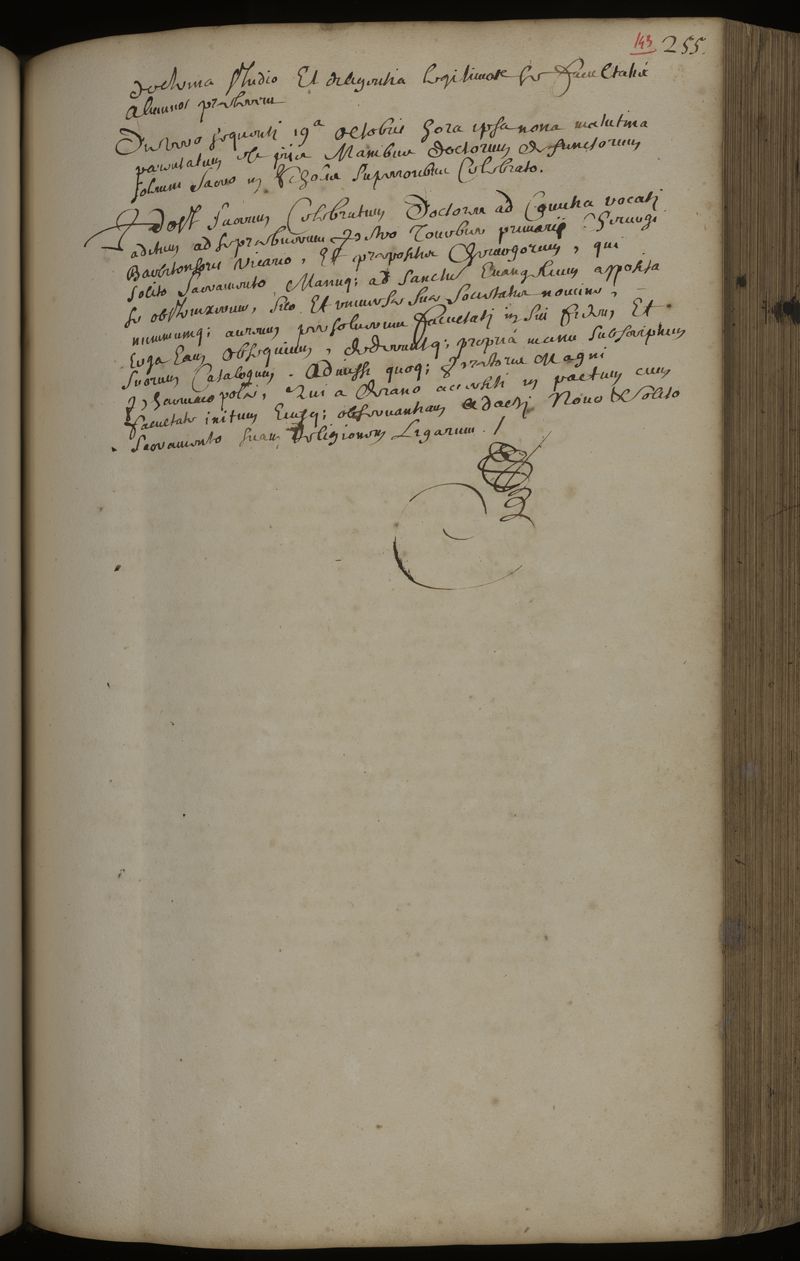 143 255.
doctrina studio Et diligentia legitimos se facultatis
alumnos præberent
Die vero sequenti 19ª octobris hora ipsa nona matutina
pro Manibus doctorum defunctorum
solemni Sacro in Scholis Superioribus Celebrato.
Post Sacrum Celebratum Doctores ad Comitia vocati
aditum ad se præbuerunt Petro primarii Chirurgi
Barbitonsoris Vicario, Et præpositis Chirurgorum, qui
solito Sacramento Manuq; ad Sancta Euangelium apposita
se obstrinxerunt, suo Et universæ suæ Societatis nomine,
nummumq; aureum persoluerunt facultati in sui fidem Et
Erga Eam obsequium, dederuntq; propriâ manu Subscriptum
Suorum Catalogum. Admissi quoq; quatuor Magni
Pharmacopolæ, Qui a Decano acersiti in pactum cum
facultate initum Eiusq; obseruantiam adacti Nouo et Solito
Sacramento suam Religionem Ligarunt ./